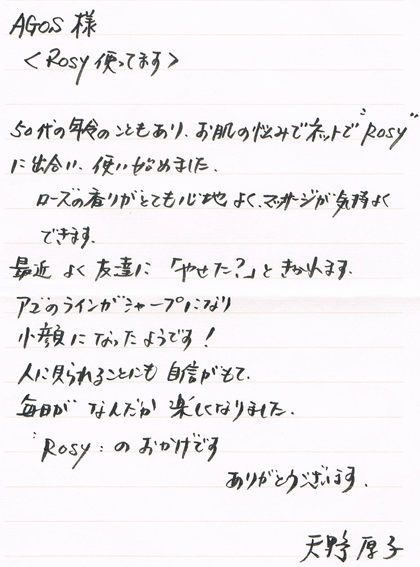 AGOS 様
＜Rosy 使ってます＞
50代の年令のこともあり、お肌の悩みでネットで"Rosy"
に出合い、使い始めました。
ローズの香りがとても心地よく、マッサージが気持よく
できます。
最近 よく 友達に 「やせた？」と きかれます。
アゴのラインがシャープになり
小顔に なったようです！
人に見られることにも 自信がもて、
毎日が なんだか 楽しくなりました。
"Rosy" の おかげです
ありがとうございます。
天野 厚子